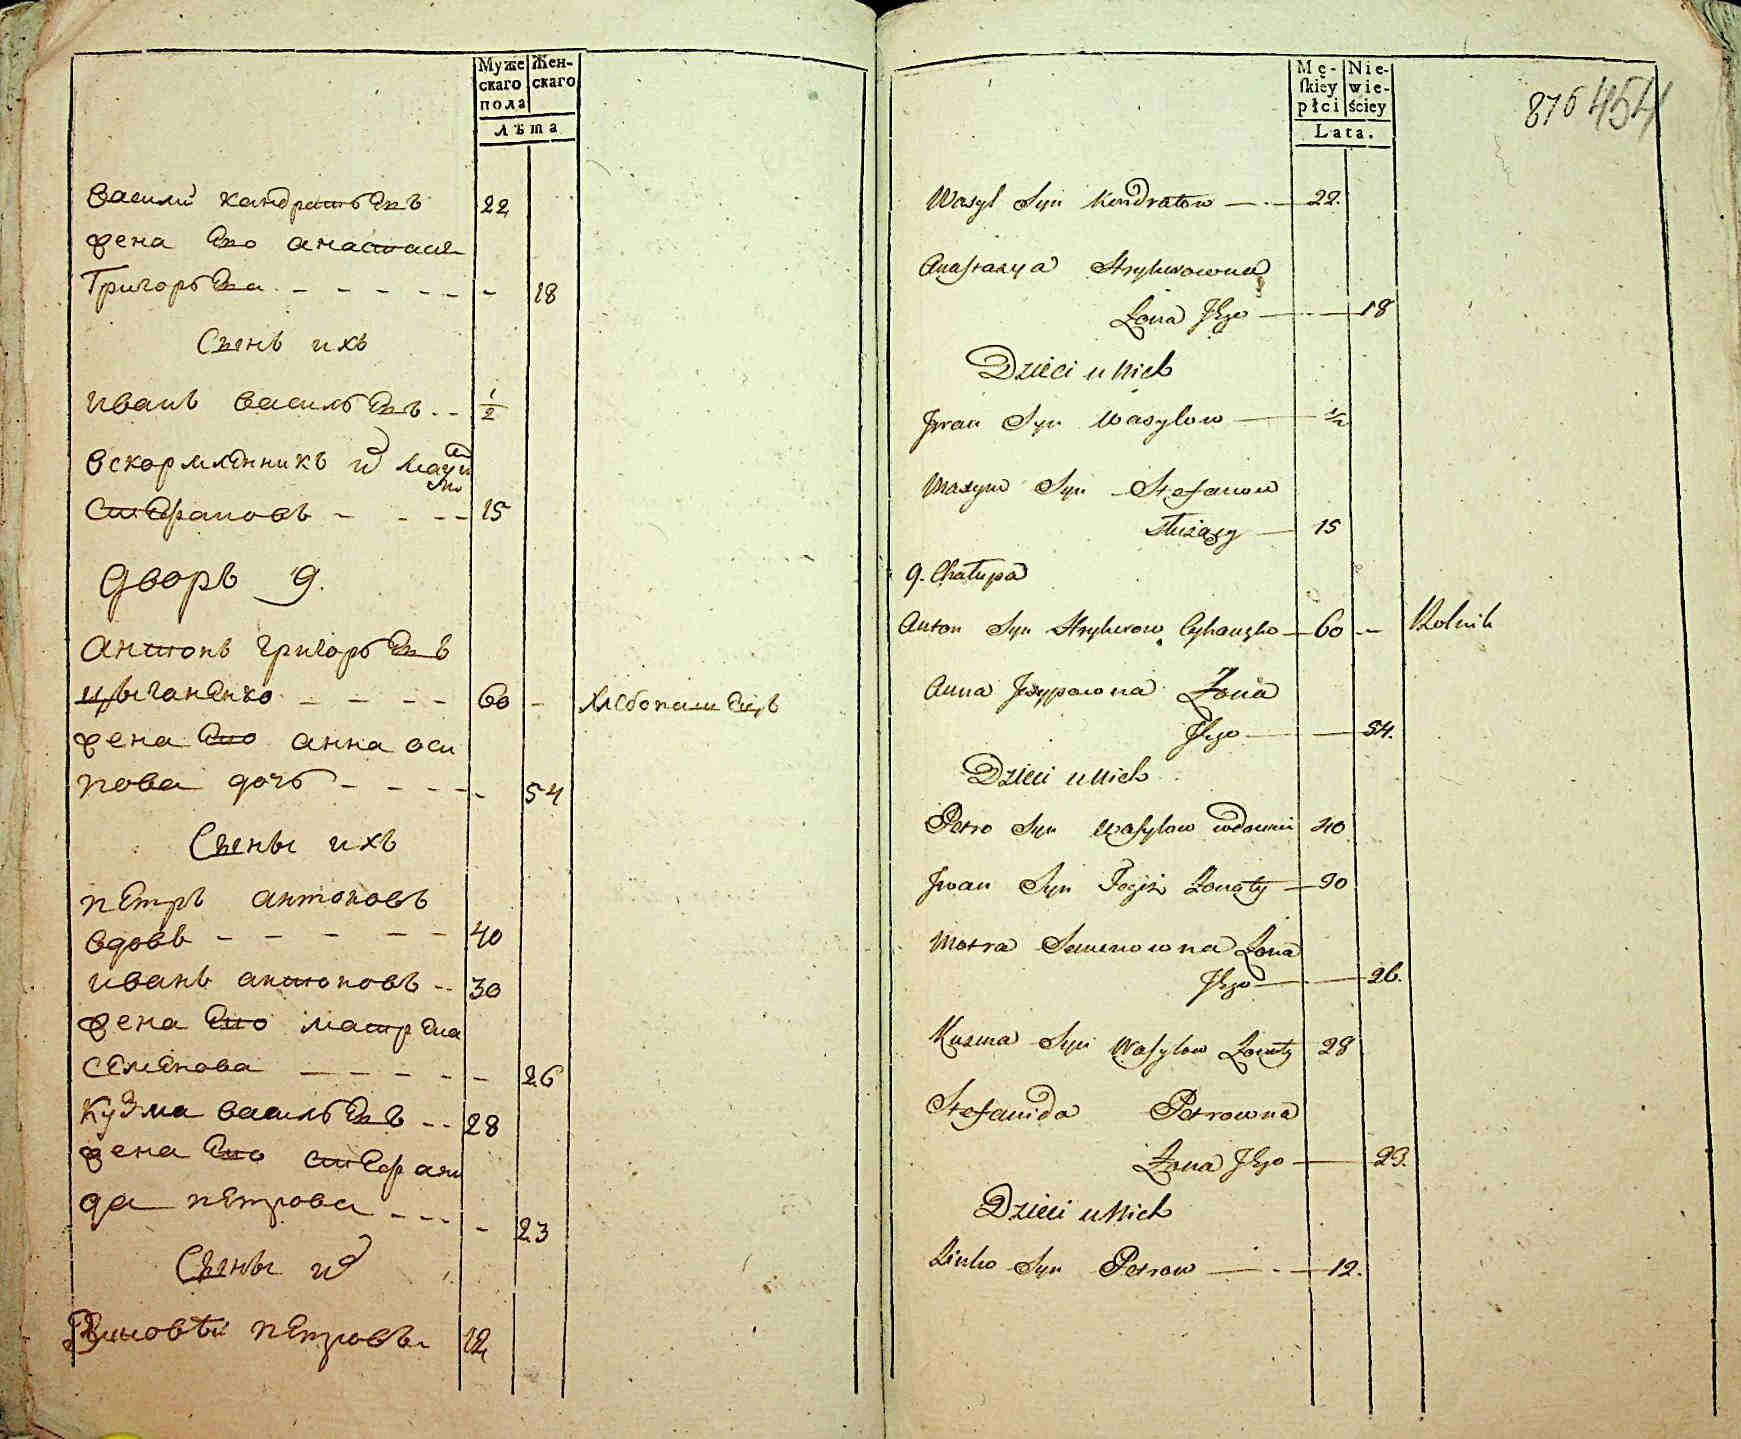 Муже
скаго
пола
Жен-
скаго
Лѣта
василий кандратьевъ 22
жена ево анастасия
Григорьева - - - - - - 18
Сынъ ихъ
иванъ васильевъ - - 1/2
вскормленникъ
Стефановъ - - - - 15
Дворъ 9.
Антонъ григорьевъ
цыганенко - - - - 60 - хлебопашецъ
жена ево анна оси
пова дочь - - - - - 54
Сыны ихъ
петръ антоновъ
вдовъ - - - - - 40
иванъ антоновъ - - 30
жена ево матрена
семенова - - - - - 26
кузма васильевъ - - 28
жена ево стефани
да петрова - - - - 23
Сыны
Зиновѣй петровъ 12
Mę-
ſkiey
płci
Nie-
wie-
ściey
Lata.
876 454
Wasyl Syn Kondratow — 22.
Anastazya Hryhorowna
Żona Jego — 18
Dzieci u Nich
Jwan Syn Wasylow — 1/2
Maxym Syn Stefanow
służący — 15
9. Chałupa
Anton Syn Hryhorow Cyhanenko — 60 — Rolnik
Anna Jozypowna Żona
Jego — 54.
Dzieci u Nich
Petro Syn Wasylow wdowiec 40
Jwan Syn Tegoż Żonaty — 30
Motra Semenowna Żona
Jego — 26.
Kuzma Syn Wasylow Żonaty 28
Stefanida Petrowna
Żona Jego — 23.
Dzieci u Nich
Zinko Syn Petrow — 12.